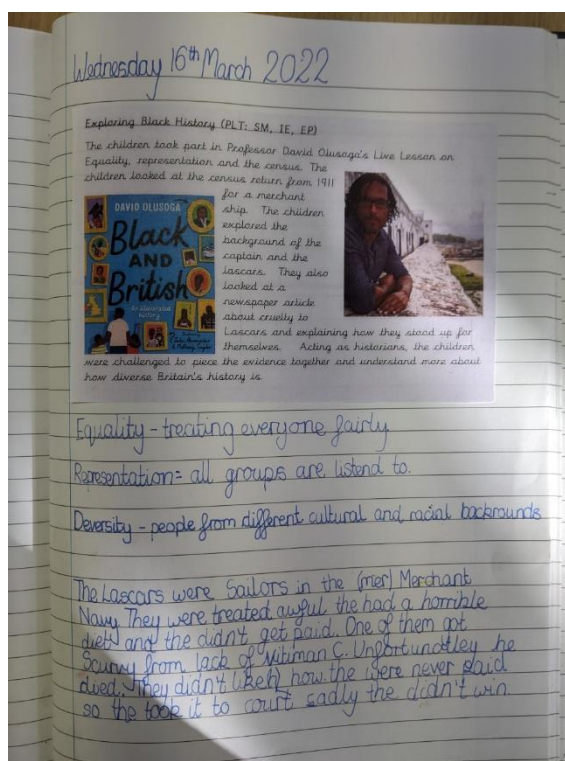 Wednesday 16th March 2022
Exploring Black History (PLT: SM, IE, EP)
The children took part in Professor David Olusoga's Live Lesson on
Equality, representation and the census. The
children looked at the census return from 1911
for a merchant
ship. The children
explored the
background of the
captain and the
lascars. They also
looked at a
newspaper article
about cruelty to
Lascars and explaining how they stood up for
themselves. Acting as historians, the children
were challenged to piece the evidence together and understand more about
how diverse Britain's history is.
DAVID OLUSOGA
Black
AND
British
An illustrated
history
Equality - treating everyone fairly
Representation = all groups are listend to.
Deversity - people from different cultural and racial backrounds
The Lascars were Sailors in the (mer) Merchant
Navy They were treated awful the had a horrible
diet and the didn't get paid. One of them got
Scurvy from lack of vitiman C. Unfortunatley he
died. They didn't like how the were never paid
so the took it to court sadly the didn't win